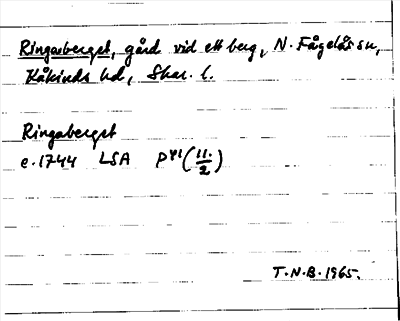 Ringaberget, gård vid ett berg, N. Fågelås sn,
Kåkinds hd, Skar. l.
Ringaberget
e. 1744 LSA P41 (11/2)
T.N.B. 1965.